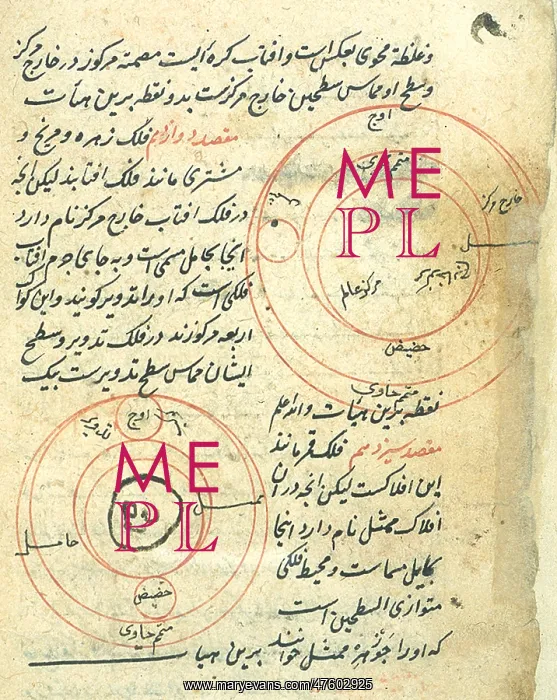 وغلظهٔ محوی بعکس است و افتاب کره ایست مصمته مرکوز در خارج مرکز
وسطح او مماس سطحین خارج مرکزست بدو نقطه برین هیأت
مقصد دوازدهم فلک زهره و مریخ و
مشتری مانند فلک افتابند لیکن انچه
در فلک افتاب خارج مرکز نام دارد
اینجا بحامل مسمی است و به جای جرم افتاب
فلکی است که او را تدویر گویند و این کواکب
اربعه مرکوزند در فلک تدویر و سطح
ایشان مماس سطح تدویرست بیک
نقطه برین هیأت والله اعلم
مقصد سیزدهم فلک قمر مانند
این افلاکست لیکن انچه در ان
افلاک ممثل نام دارد اینجا
بمایل مسماست و محیط فلکی
متوازی السطحین است
که او را جوزهر و ممثل خوانند برین هیأت
اوج
متمم حاوی
خارج مرکز
ممثل
مرکز عالم
حضیض
متمم حاوی
اوج
تدویر
ممثل
حامل
حضیض
متمم حاوی
ME
PL
ME
PL
www.maryevans.com/47602925